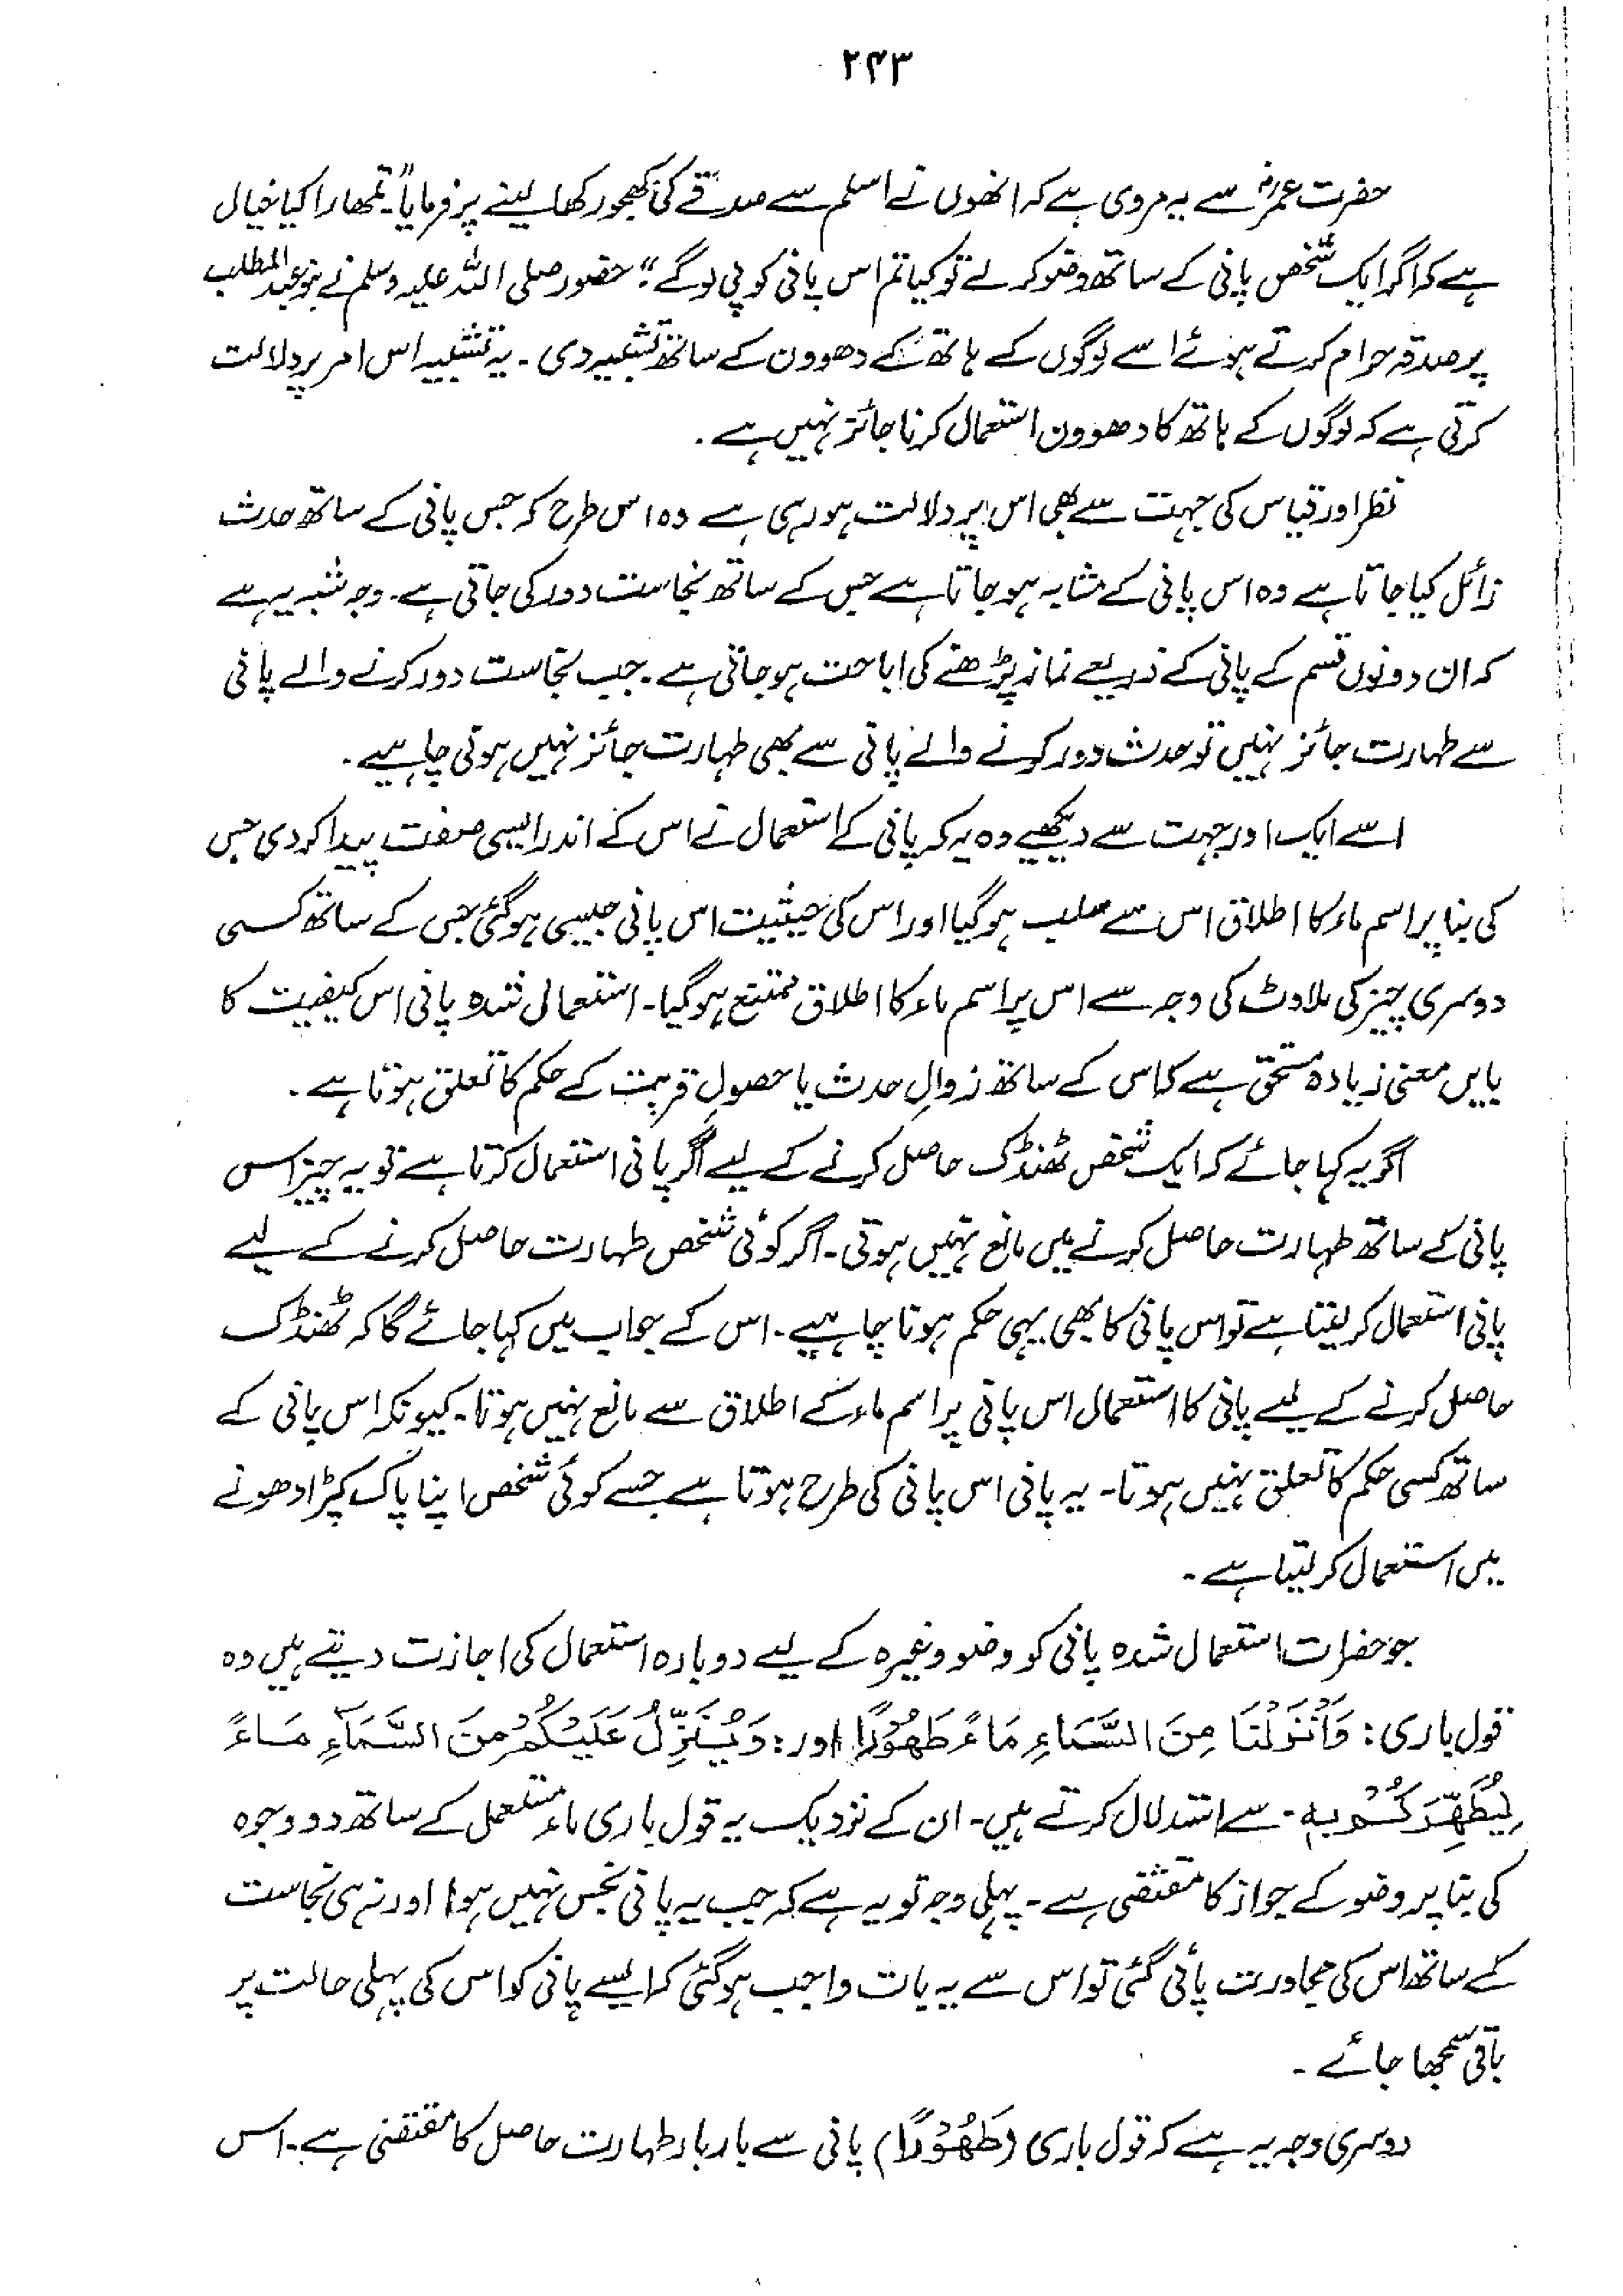 ۲۴۳
حضرت عمرؓ سے یہ مروی ہے کہ انھوں نے اسلم سے صدقے کی کھجور کھا لینے پر فرمایا "تمھارا کیا خیال
ہے کہ اگر ایک شخص پانی کے ساتھ وضو کر لے تو کیا تم اس پانی کو پی لو گے"؛ حضور صلی اللہ علیہ وسلم نے بنو عبد المطلب
پر صدقہ حرام کرتے ہوئے اسے لوگوں کے ہاتھ کے دھوون کے ساتھ تشبیہ دی ۔ یہ تشبیہ اس امر پر دلالت
کرتی ہے کہ لوگوں کے ہاتھ کا دھوون استعمال کرنا جائز نہیں ہے ۔
نظر اور قیاس کی جہت سے بھی اس پر دلالت ہو رہی ہے وہ اس طرح کہ جس پانی کے ساتھ حدث
زائل کیا جاتا ہے وہ اس پانی کے مشابہ ہو جاتا ہے جس کے ساتھ نجاست دور کی جاتی ہے ۔ وجہ شبہ یہ ہے
کہ ان دونوں قسم کے پانی کے ذریعے نماز پڑھنے کی اباحت ہو جاتی ہے ۔ جب نجاست دور کرنے والے پانی
سے طہارت جائز نہیں تو حدث دور کرنے والے پانی سے بھی طہارت جائز نہیں ہونی چاہیے ۔
اسے ایک اور جہت سے دیکھیے وہ یہ کہ پانی کے استعمال نے اس کے اندر ایسی صفت پیدا کر دی جس
کی بنا پر اسم ماء کا اطلاق اس سے سلب ہو گیا اور اس کی حیثیت اس پانی جیسی ہو گئی جس کے ساتھ کسی
دوسری چیز کی ملاوٹ کی وجہ سے اس پر اسم ماء کا اطلاق ممتنع ہو گیا ۔ استعمال شدہ پانی اس کیفیت کا
بایں معنی زیادہ مستحق ہے کہ اس کے ساتھ زوالِ حدث یا حصولِ قربت کے حکم کا تعلق ہوتا ہے ۔
اگر یہ کہا جائے کہ ایک شخص ٹھنڈک حاصل کرنے کے لیے اگر پانی استعمال کرتا ہے تو یہ چیز اس
پانی کے ساتھ طہارت حاصل کرنے میں مانع نہیں ہوتی ۔ اگر کوئی شخص طہارت حاصل کرنے کے لیے
پانی استعمال کر لیتا ہے تو اس پانی کا بھی یہی حکم ہونا چاہیے ۔ اس کے جواب میں کہا جائے گا کہ ٹھنڈک
حاصل کرنے کے لیے پانی کا استعمال اس پانی پر اسم ماء کے اطلاق سے مانع نہیں ہوتا ۔ کیونکہ اس پانی کے
ساتھ کسی حکم کا تعلق نہیں ہوتا ۔ یہ پانی اس پانی کی طرح ہوتا ہے جسے کوئی شخص اپنا پاک کپڑا دھونے
میں استعمال کر لیتا ہے ۔
جو حضرات استعمال شدہ پانی کو وضو وغیرہ کے لیے دوبارہ استعمال کی اجازت دیتے ہیں وہ
قول باری : وَاَنْزَلْنَا مِنَ السَّمَاءِ مَاءً طَهُوْرًا اور : وَيُنَزِّلُ عَلَيْكُمْ مِنَ السَّمَآءِ مَاءً
لِيُطَهِّرَكُمْ بِهٖ ۔ سے استدلال کرتے ہیں ۔ ان کے نزدیک یہ قول باری ماءِ مستعمل کے ساتھ دو وجوہ
کی بنا پر وضو کے جواز کا مقتضی ہے ۔ پہلی وجہ تو یہ ہے کہ جب یہ پانی نجس نہیں ہوا اور نہ ہی نجاست
کے ساتھ اس کی مجاورت پائی گئی تو اس سے یہ بات واجب ہو گئی کہ ایسے پانی کو اس کی پہلی حالت پر
باقی سمجھا جائے ۔
دوسری وجہ یہ ہے کہ قول باری (طَهُوْرًا) پانی سے بار بار طہارت حاصل کا مقتضی ہے ۔ اس